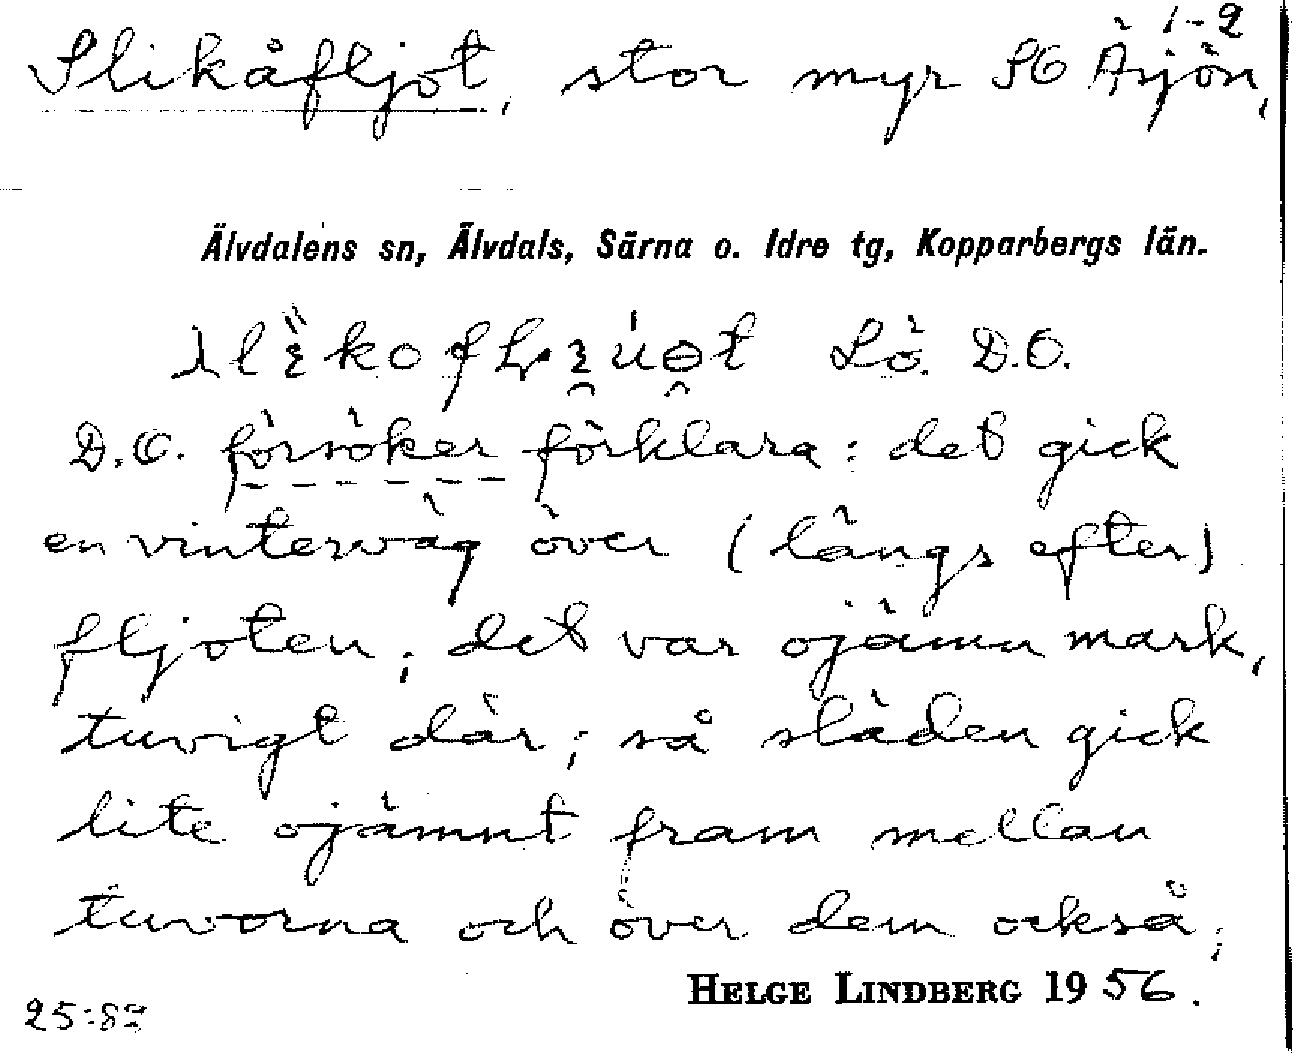 1-2
Slikåfljot, stor myr SO Äsjön,
Älvdalens sn, Älvdals, Särna o. Idre tg, Kopparbergs län.
Lö. D.O.
D.O. försöker förklara: det gick
en vinterväg över (längs efter)
fljoten; det var ojämn mark,
tuvigt där; så släden gick
lite ojämnt fram mellan
tuvorna och över dem också;
HELGE LINDBERG 1956.
25:87